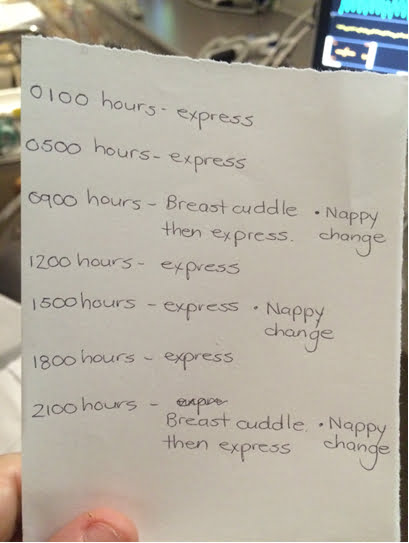 0100 hours - express
0500 hours - express
0900 hours - Breast cuddle • Nappy
then express. change
1200 hours - express
1500 hours - express • Nappy
change
1800 hours - express
2100 hours - expre
Breast cuddle. • Nappy
then express change